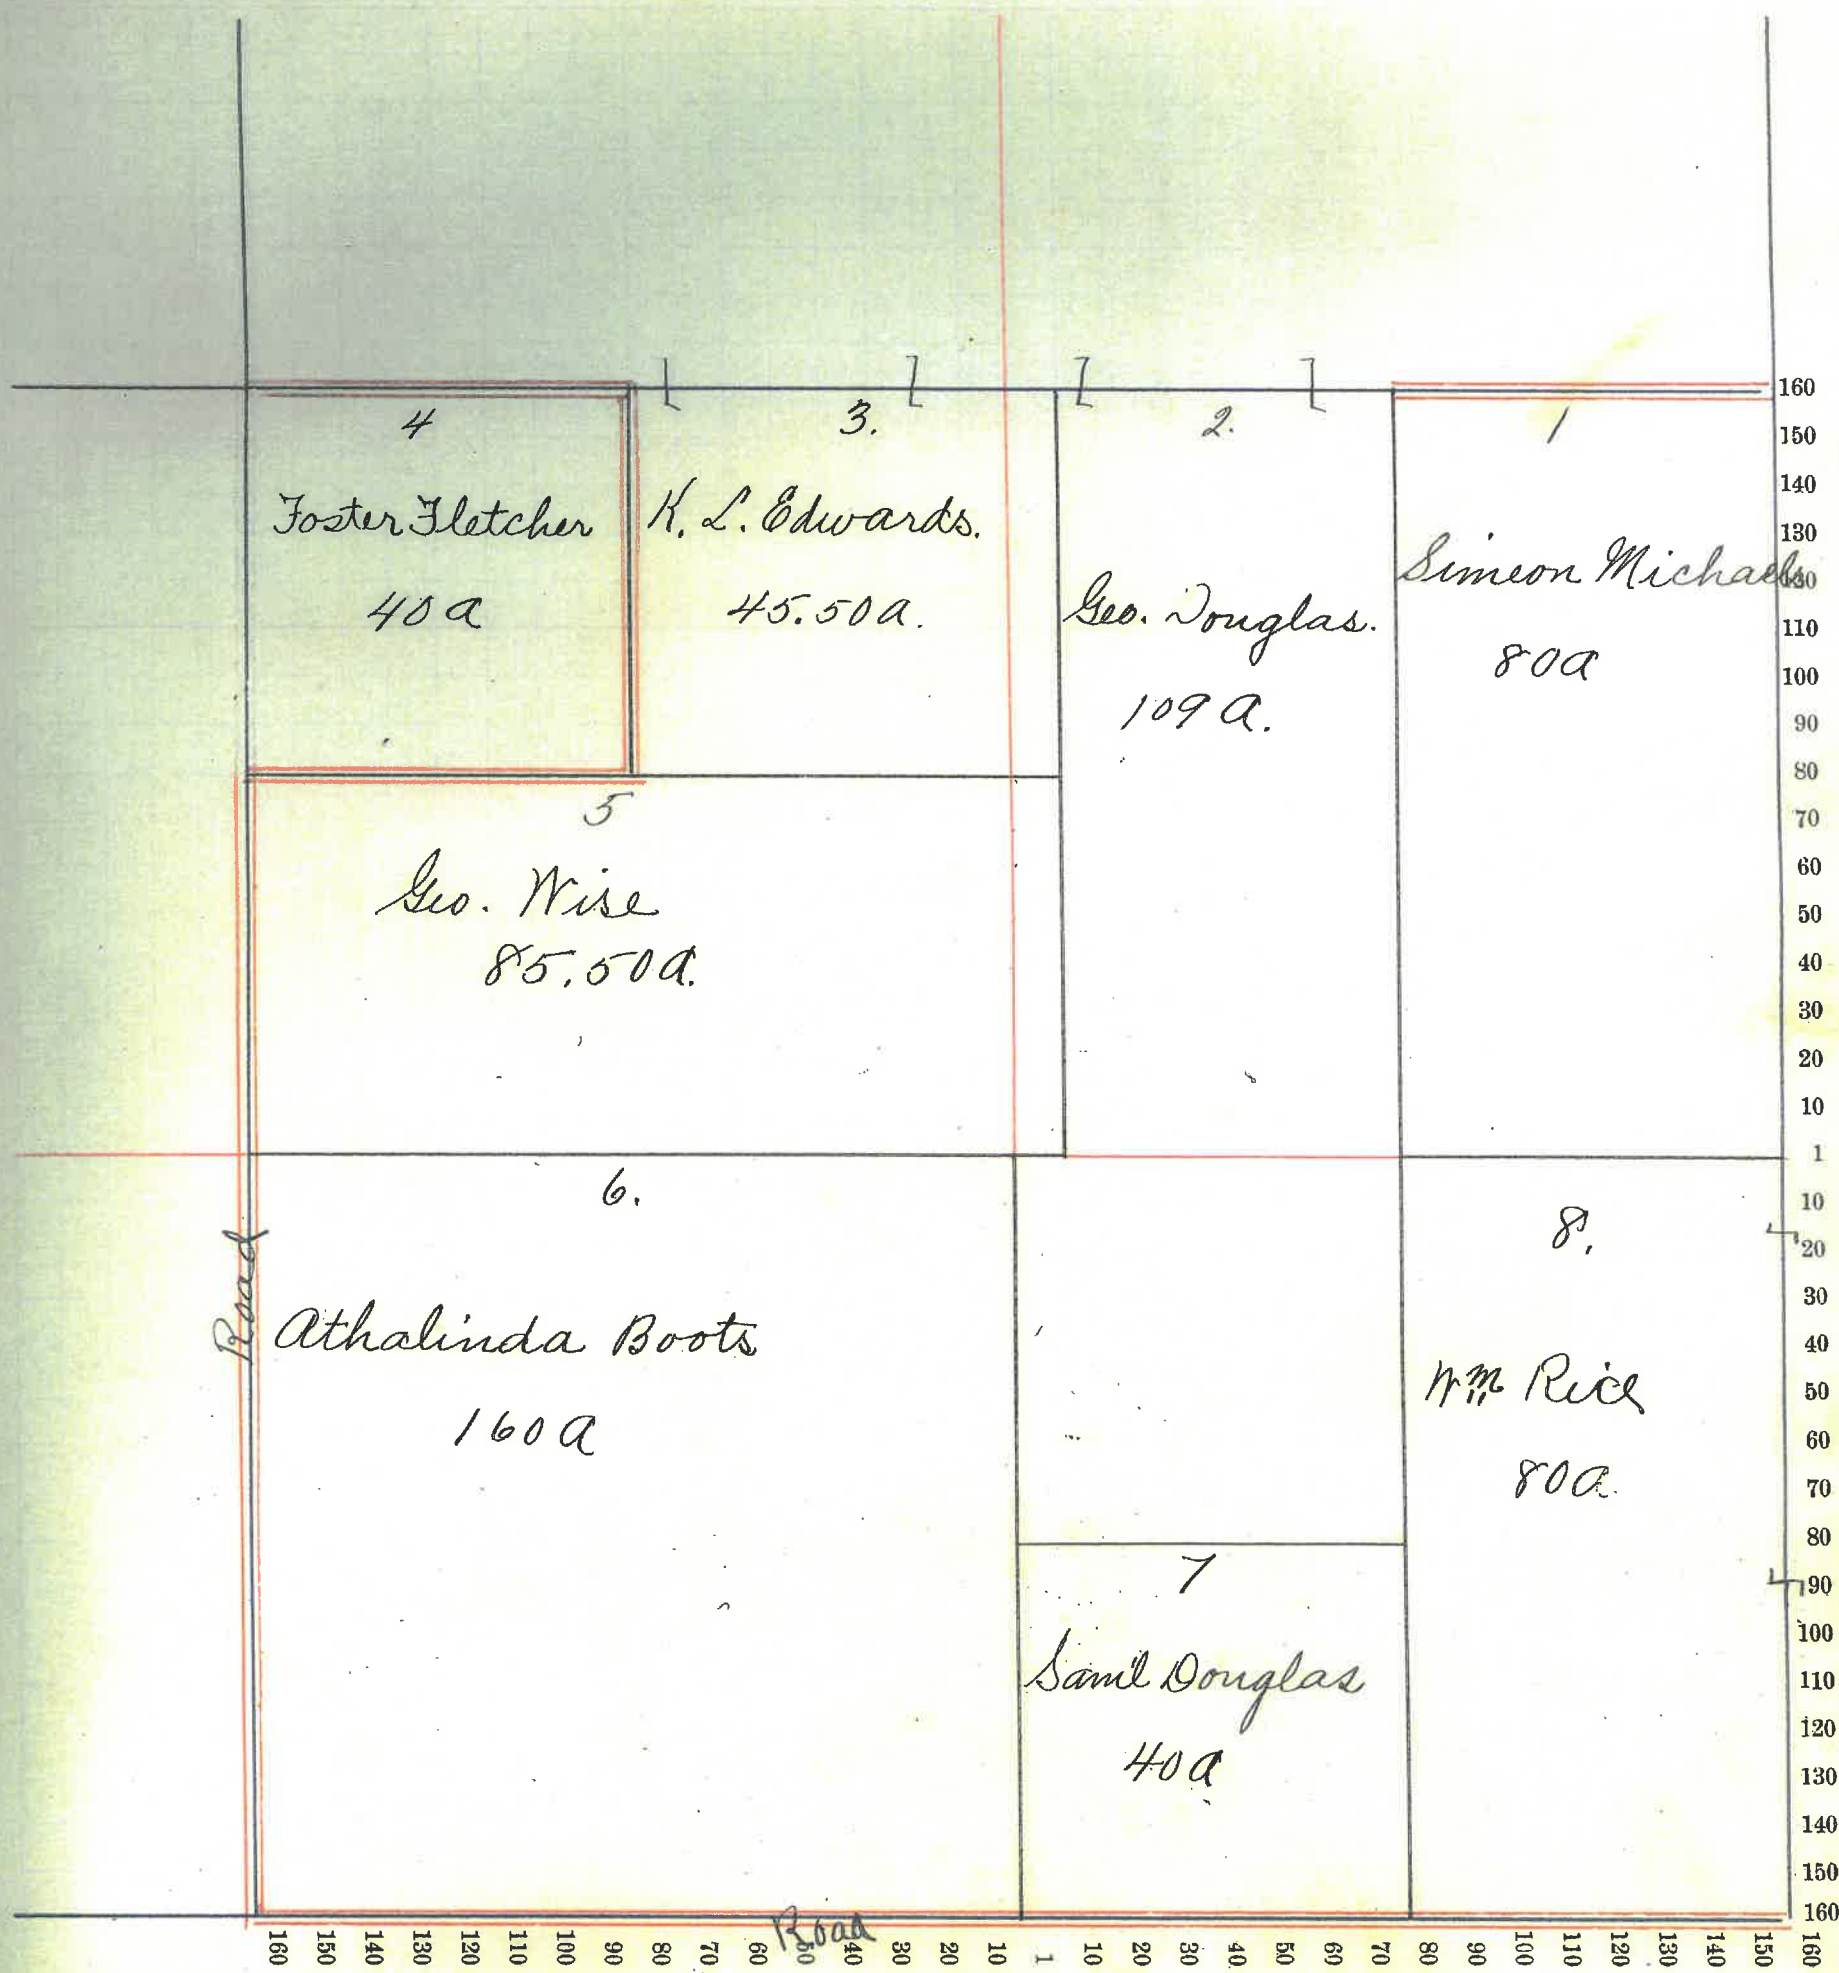 4
Foster Fletcher
40 a
3.
K. L. Edwards.
45.50 a.
2.
Geo. Douglas.
109 a.
1
Simeon Michaels
80 a
5
Geo. Wise
85.50 a.
6.
Athalinda Boots
160 a
8.
Wm Rice
80 a.
7
Saml Douglas
40 a
Road
Road
160
150
140
130
120
110
100
90
80
70
60
50
40
30
20
10
1
10
20
30
40
50
60
70
80
90
100
110
120
130
140
150
160
160 150 140 130 120 110 100 90 80 70 60 50 40 30 20 10 1 10 20 30 40 50 60 70 80 90 100 110 120 130 140 150 160